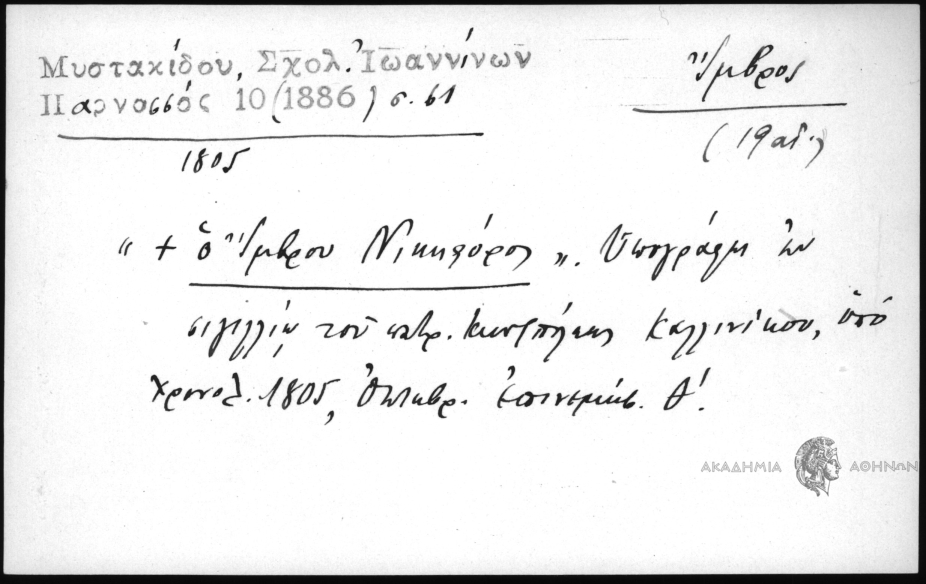 Μυστακίδου, Σχολ. Ἰωαννίνων
Παρνασσός 10 (1886) σ. 61
Ἴμβρος
(19 αἰ.)
1805
" + ὁ Ἴμβρου Νικηφόρος ". Ὑπογράφει ἐν
σιγιλλίῳ τοῦ πατρ. Κων/πόλεως Καλλινίκου, ὑπό
χρονολ. 1805, Ὀκτωβρ. ἐπινεμήσ. Θ΄.
ΑΚΑΔΗΜΙΑ ΑΘΗΝΩΝ